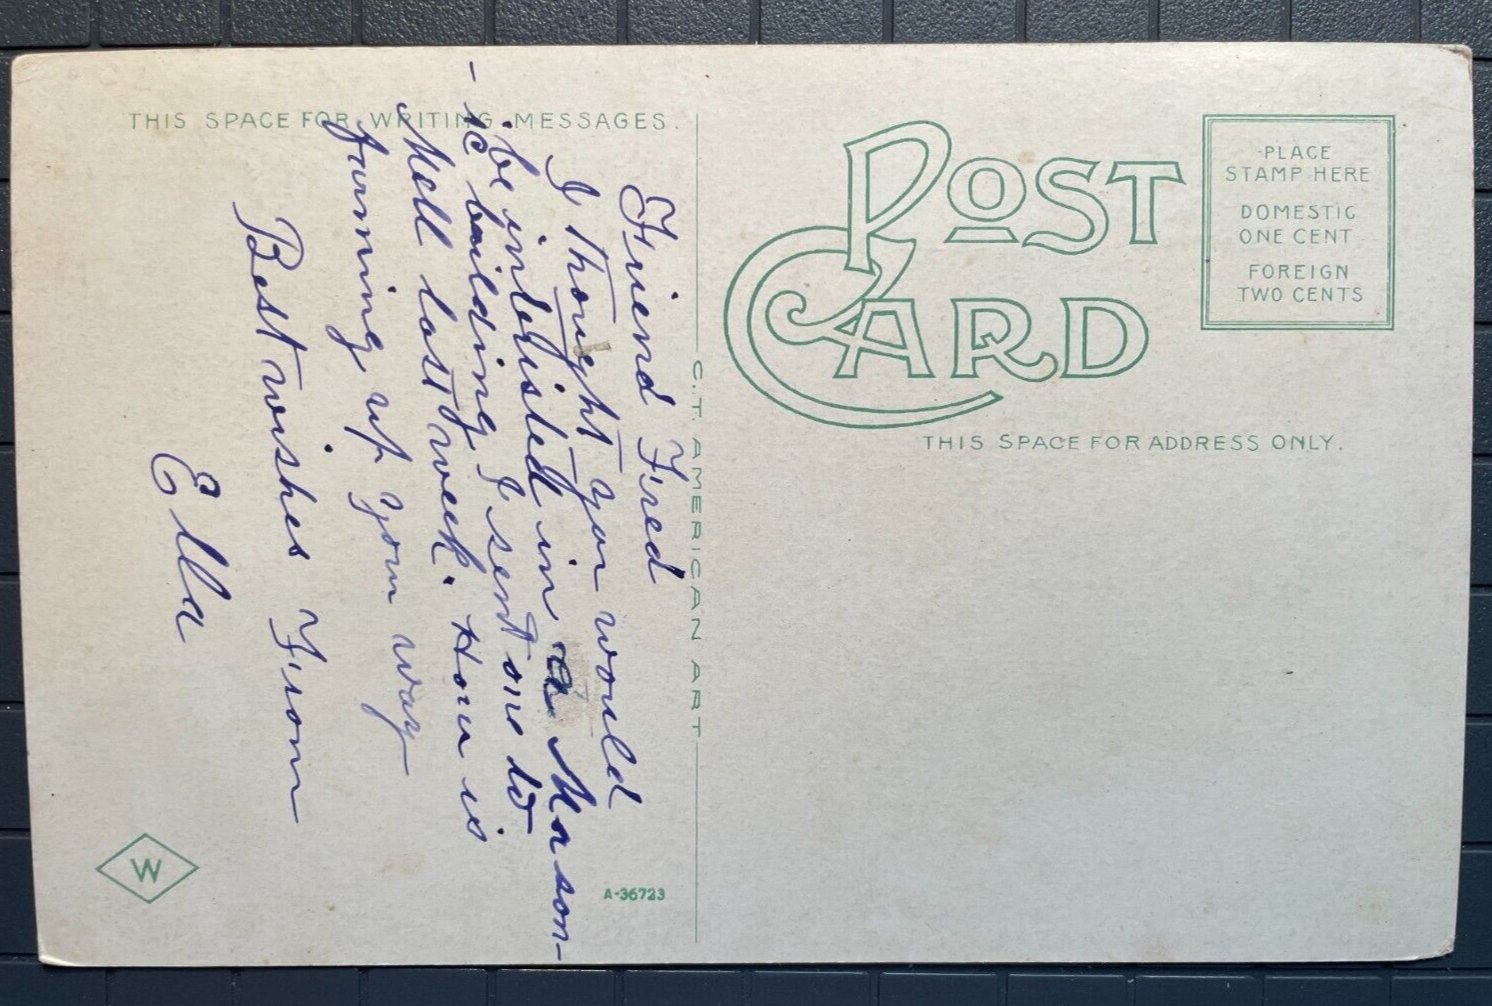 THIS SPACE FOR WRITING MESSAGES.
Friend Fred
I thought you would
be intorisled in a Mason-
-ic building I sent one to
Mell last week. How is
farming up your way
Best wishes From
Ella
W
A-36723
C.T. AMERICAN ART
POST
CARD
THIS SPACE FOR ADDRESS ONLY.
PLACE
STAMP HERE
DOMESTIC
ONE CENT
FOREIGN
TWO CENTS